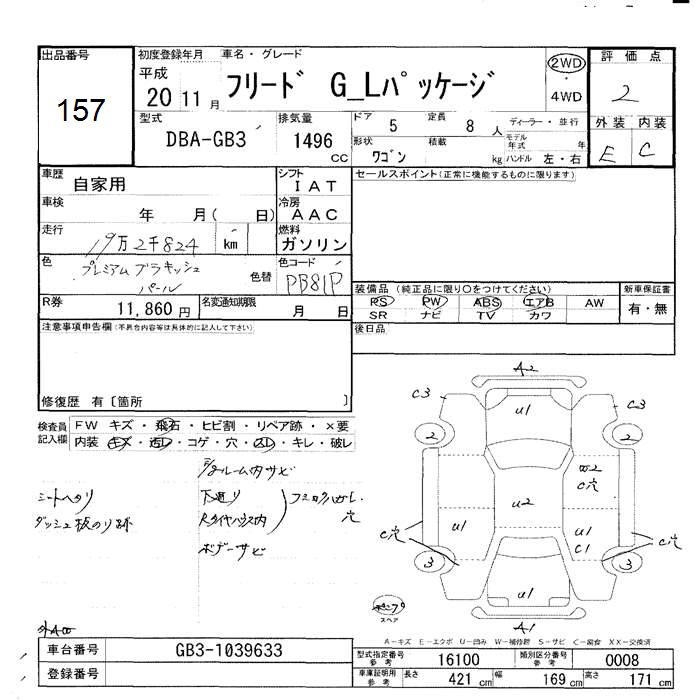 出品番号
157
初度登録年月
平成
20 11 月
車名・グレード
フリード G_Lパッケージ
2WD
4WD
評価点
2
外装 内装
E C
型式
DBA-GB3
排気量
1496
CC
ドア 5
定員 8 人
ディーラー・並行
形状 ワゴン
積載 kg
モデル年式 年
ハンドル 左・右
車歴
自家用
シフト
IAT
車検
年 月( 日)
冷房
AAC
走行
19万2千824
km
燃料
ガソリン
色
プレミアム ブラキッシュ
パール
色替
色コード
PB81P
R券
11,860円
名変通知期限
月 日
セールスポイント(正常に機能するものに限ります)
装備品(純正品に限り○をつけてください)
新車保証書
PS PW ABS エアB AW
有・無
SR ナビ TV カワ
後日品
注意事項申告欄(不具合内容等は具体的に記入して下さい)
修復歴 有〔箇所 〕
検査員
記入欄
FW キズ・飛石・ヒビ割・リペア跡・×要
内装 キズ・コゲ・穴・キレ・破レ
ルーム内サビ
シートヘタリ
ダッシュ板のり跡
下廻り
Rタイヤハウス内
穴
ボデーサビ
A2
C3
C3
U1
2
2
W2
C穴
U2
U1
U1
C1
C穴
C穴
3
3
U1
A1
スペア
A-キズ E-エクボ U-凹み W-補修跡 S-サビ C-腐食 XX-交換済
車台番号
GB3-1039633
登録番号
型式指定番号
参考
16100
類別区分番号
参考
0008
車庫証明用
参考
長さ 421 cm
幅 169 cm
高さ 171 cm